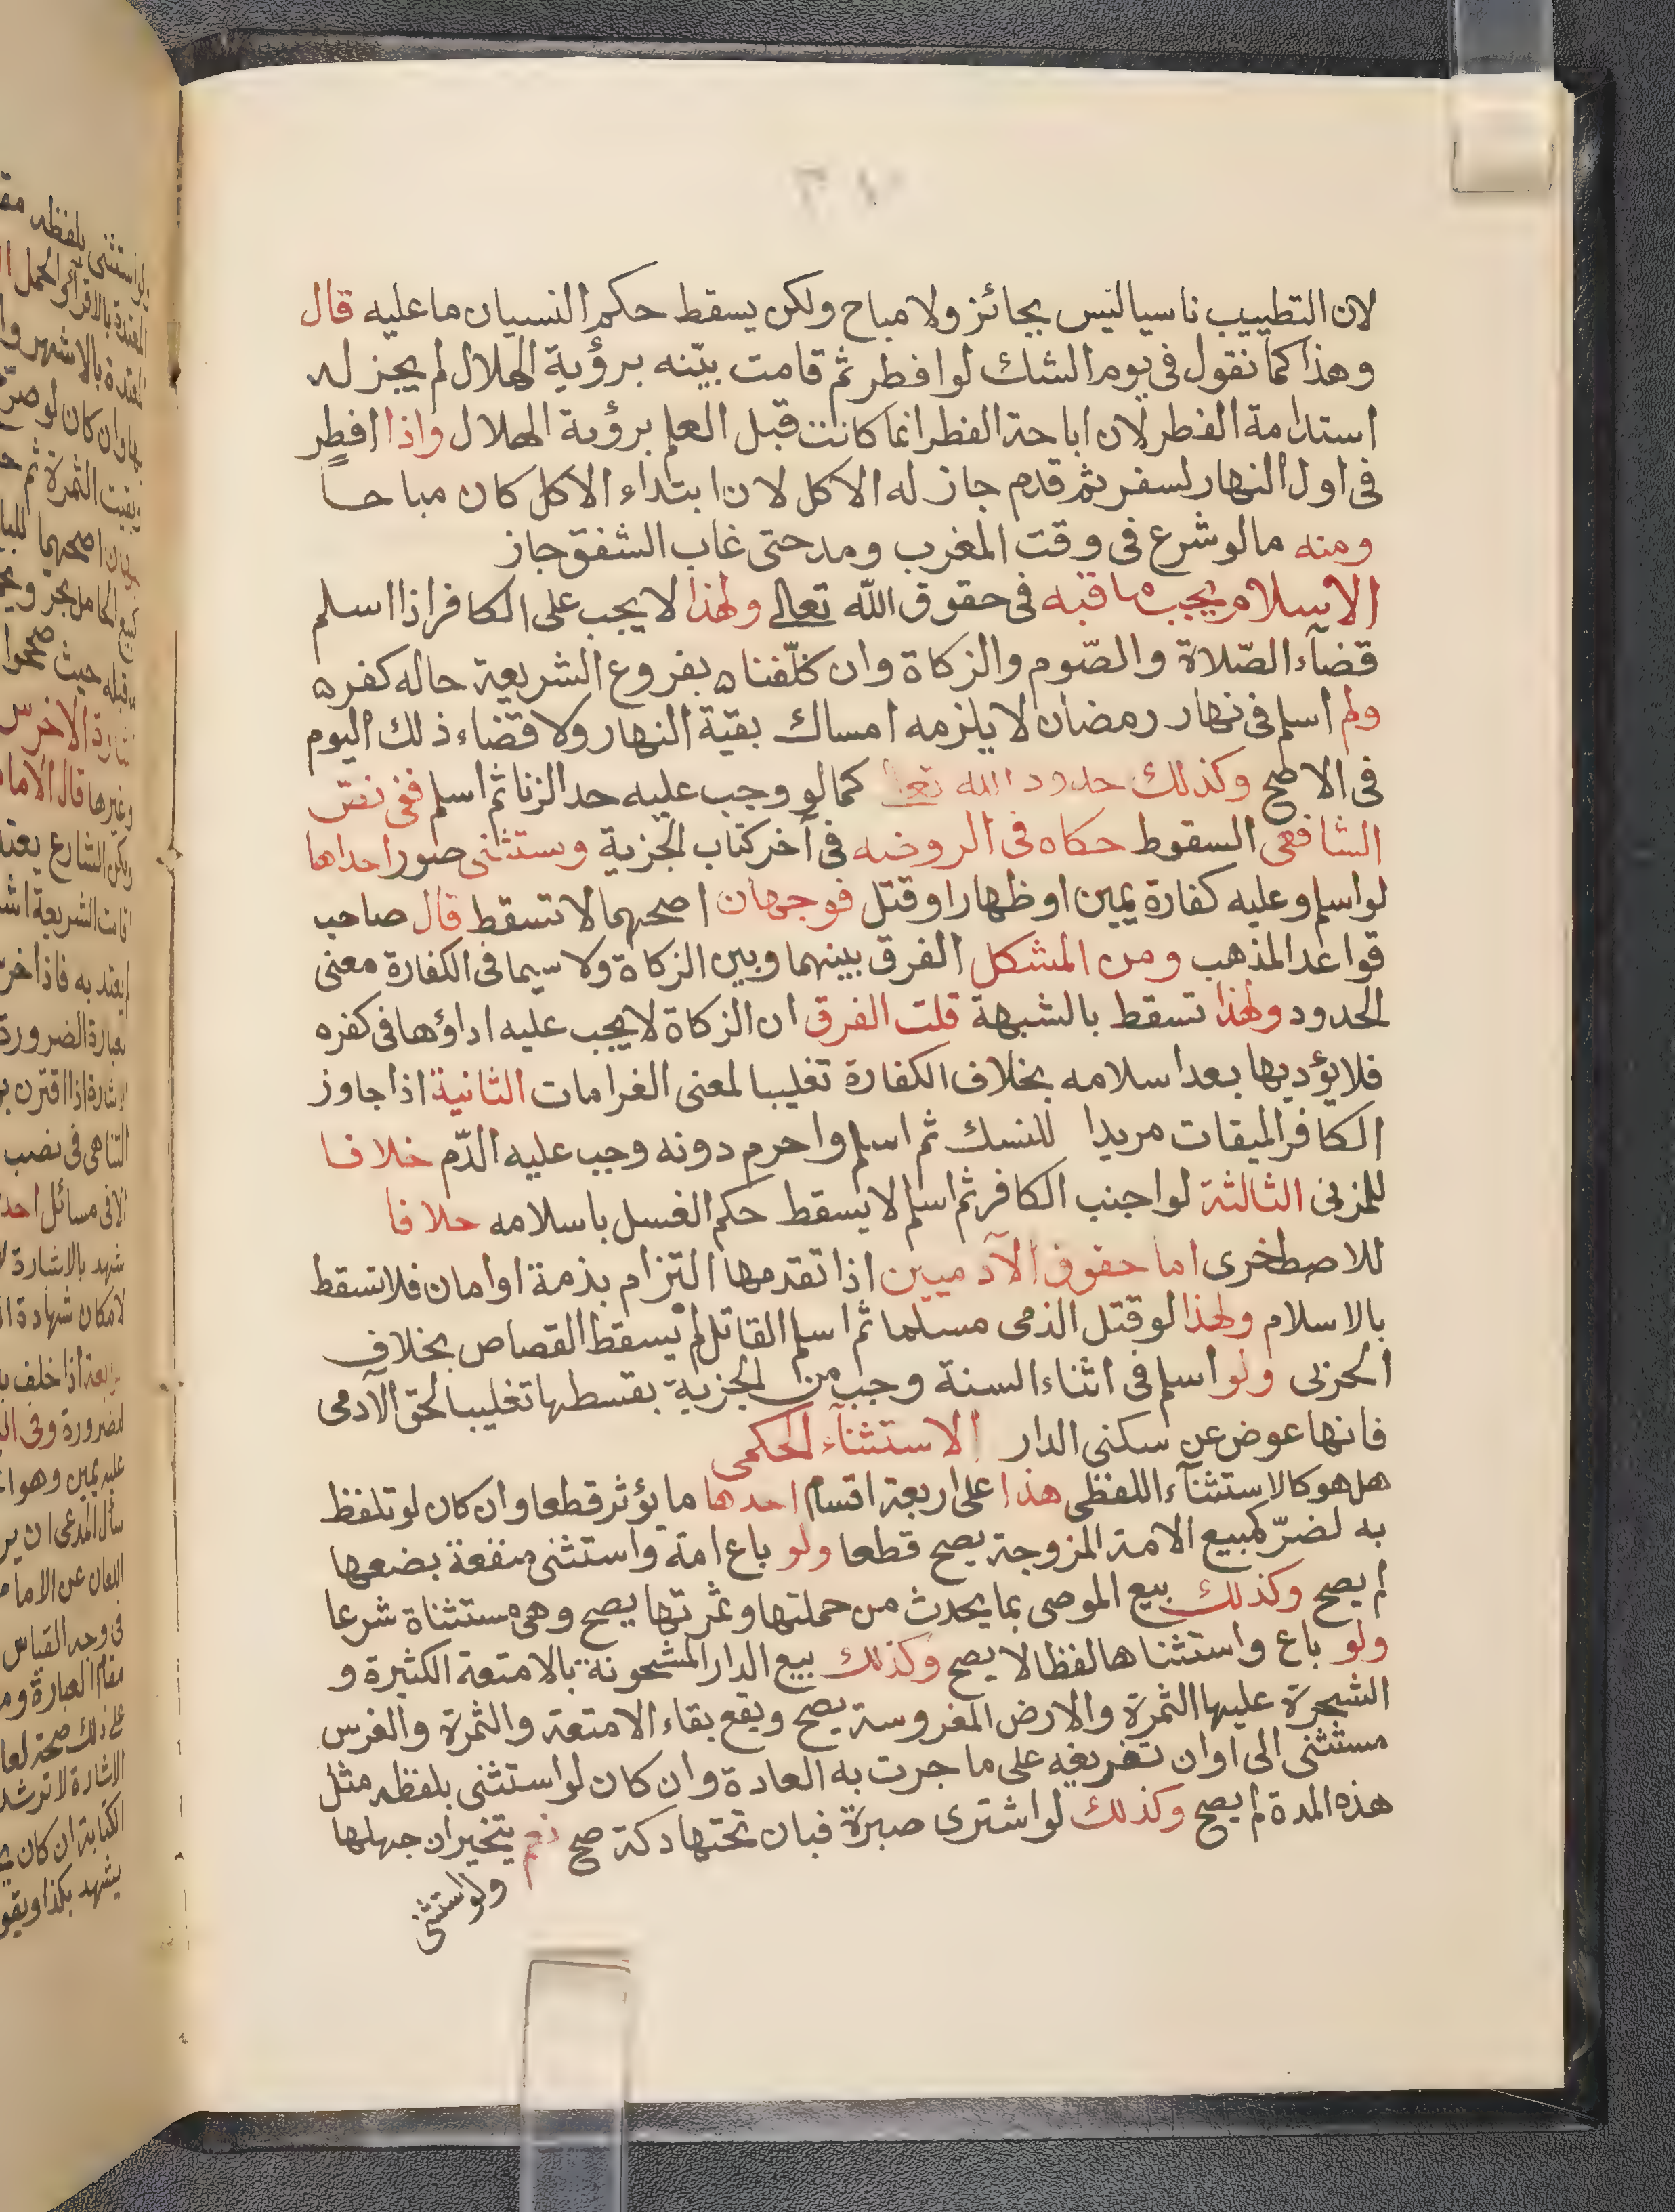 لان التطييب ناسيا ليس بجائز ولا مباح ولكن يسقط حكم النسيان ما عليه قال
وهذا كما نقول في يوم الشك لو افطر ثم قامت بيّنه برؤية الهلال لم يجز له
استدامة الفطر لان اباحة الفطر انما كانت قبل العلم برؤية الهلال واذا افطر
في اول النهار لسفر ثم قدم جاز له الاكل لان ابتداء الاكل كان مباحاً
ومنه ما لو شرع في وقت المغرب ومد حتى غاب الشفق جاز
الاسلام يجب ما قبله في حقوق الله تعالى ولهذا لا يجب على الكافر اذا اسلم
قضآء الصّلاة والصّوم والزكاة وان كلّفناه بفروع الشريعة حاله كفره
ولم اسلم في نهار رمضان لا يلزمه امساك بقية النهار ولا قضاء ذلك اليوم
في الاصح وكذلك حدود الله تعالى كما لو وجب عليه حد الزنا ثم اسلم ففي نصّ
الشافعي السقوط حكاه في الروضه في آخر كتاب الجزية ويستثنى صور احداها
لو اسلم وعليه كفارة يمين او ظهار او قتل فوجهان اصحهما لا تسقط قال صاحب
قواعد المذهب ومن المشكل الفرق بينهما وبين الزكاة ولا سيما في الكفارة معنى
الحدود ولهذا تسقط بالشبهة قلت الفرق ان الزكاة لا يجب عليه اداؤها في كفره
فلا يؤديها بعد اسلامه بخلاف الكفارة تغليبا لمعنى الغرامات الثانية اذا جاوز
الكافر الميقات مريدا للنسك ثم اسلم واحرم دونه وجب عليه الدّم خلافا
للمزني الثالثة لو اجنب الكافر ثم اسلم لا يسقط حكم الغسل باسلامه خلافا
للاصطخرى اما حقوق الآدميين اذا تقدمها التزام بذمة او امان فلا تسقط
بالاسلام ولهذا لو قتل الذمى مسلما ثم اسلم القاتل لم يسقط القصاص بخلاف
الحزبى ولو اسلم في اثناء السنة وجب من الجزية بقسطها تغليبا لحق الآدمى
فانها عوض عن سكنى الدار الاستثنآء الحكمى
هل هو كالاستثنآء اللفظى هذا على اربعة اقسام احدها ما يؤثر قطعا وان كان لو تلفظ
به لضرّ كمبيع الامة المزوجة يصح قطعا ولو باع امة واستثنى منفعة بضعها
لم يصح وكذلك بيع الموصى بما يحدث من حملتها وثمرتها يصح وهى مستثناة شرعا
ولو باع واستثناها لفظا لا يصح وكذلك بيع الدار المشحونة بالامتعة الكثيرة و
الشجرة عليها الثمرة والارض المغروسة يصح ويقع بقاء الامتعة والثمرة والغرس
مستثنى الى اوان تفريغه على ما جرت به العادة وان كان لو استثنى بلفظه مثل
هذه المدة لم يصح وكذلك لو اشترى صبرة فبان تحتها دكة صح نعم يتخير ان جهلها
ولو استثنى